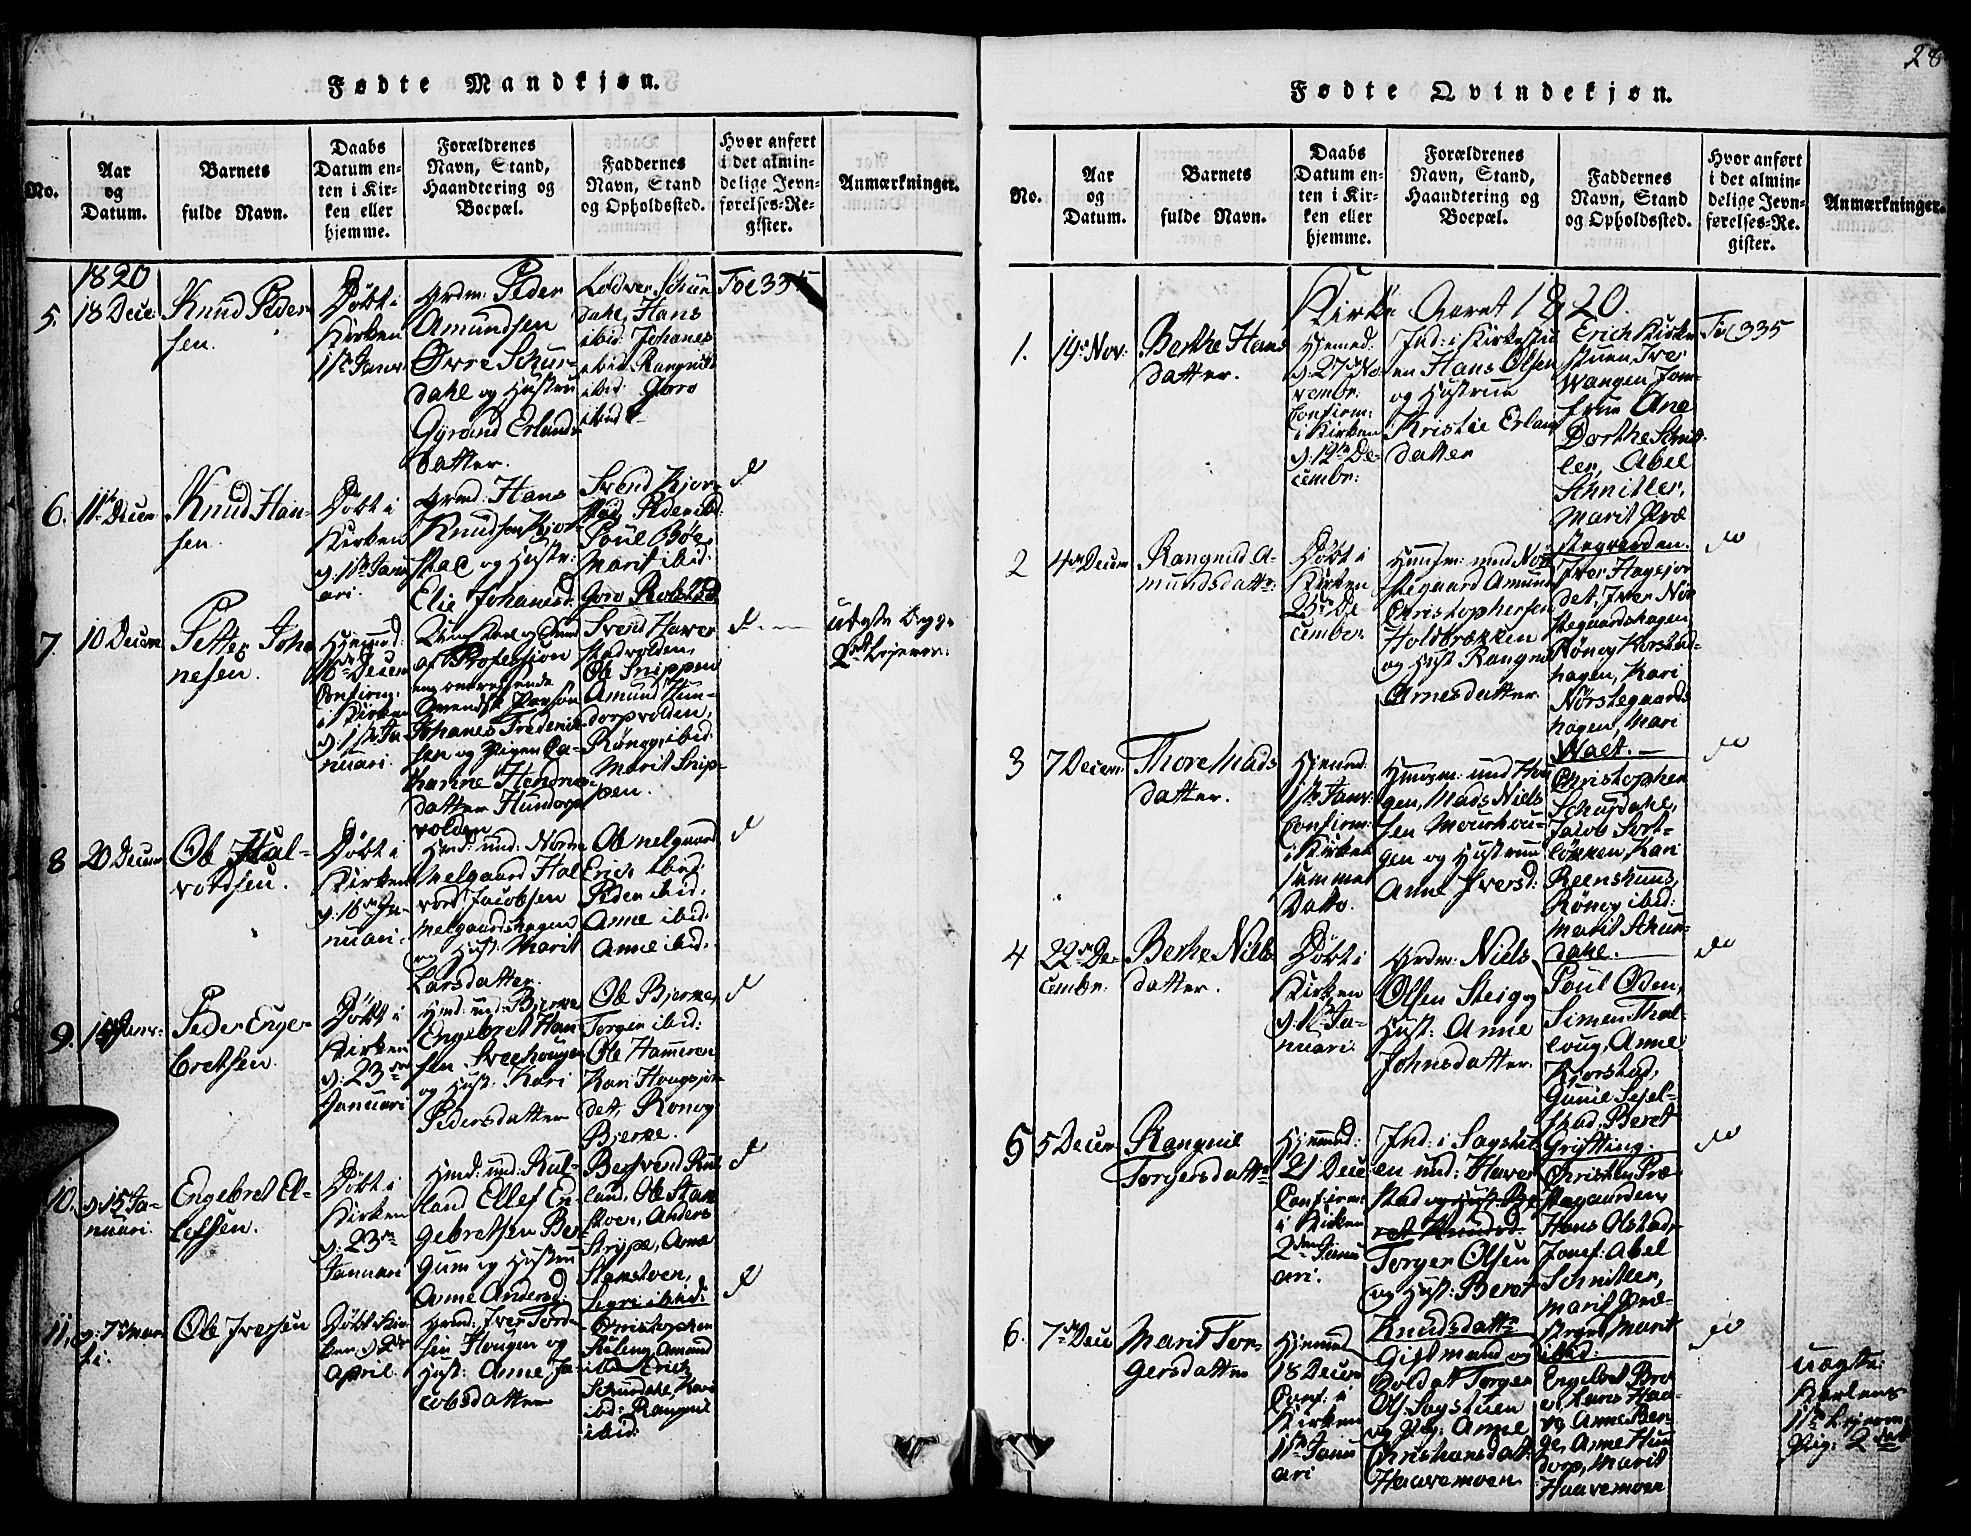 28
Fødte Mandkjøn.
No.
Aar
og
Datum.
Barnets
fulde Navn.
Daabs
Datum en-
ten i Kir-
ken eller
hjemme.
Forældrenes
Navn, Stand,
Haandtering og
Boepæl.
Faddernes
Navn, Stand
og Opholdssted.
Hvor anført
i det almin-
delige Jevn-
førelses-Re-
gister.
Anmærkninger.
1820
5.
18 Dece
Knud Peder
sen.
Døbt i
Kirken
1ste Janr
Grdm: Peder
Amundsen
Øvre Schur-
dahl og Hustru
Gyrand Erlands
datter.
Lodver Schur
dahl, Hans
ibid: Johanes
ibid: Rangnild
ibid: Goro
ibid:
Fol 335
6.
11te Decem
Knud Han-
sen.
Døbt i
Kirken
d: 1ste Janu
ari.
Grmd: Hans
Knudsen Kjør-
stad og Hustr:
Elie Johanesd.
Svend Kjør-
stad, Peder ibid:
Poul Bøe,
Marit ibid:
Goro Rolstad
do
7.
10 Decem
Petter Joha
nesen.
Hjemmed:
16de Decem
Confirm:
i Kirken
d: 1ste Ja
nuari.
af Profession
Svensk Person
Johanes Frederik-
sen og Pigen Ca-
tharine Hendrics
datter Hundorp
volden
Svend Haver
stadvolden,
Ole Snippen
Amund Hun-
dorpvolden,
Rønnog ibid:
Marit Snip-
pen.
do
uægte Begge
2det Lejerm:
8
20 Decem
Ole Hal-
vordsen.
Døbt i
Kirken
d: 16de Ja-
nuari.
Hmd: und: Nordre
Melgaard Hal
vord Jacobsen
Melgaardshagen
og Hust: Marit
Larsdatter.
Ole Melgaard
Erich ibid:
Peder ibid:
Anne ibid:
Anne ibid:
do
9.
14 Janr:
Peder Enge-
bretsen.
Døbt i
Kirken
d: 23de
Januari
Hmd: und: Bjerke
Engebret Han
sen Sveehougen
og Hust: Kari
Pedersdatter
Ole Bjerke,
Torgen ibid:
Ole Hammeren
Kari Hougsjor
det, Ronog
Bjerke.
do
10.
d: 15 Ja-
nuari.
Engebret El-
lefsen.
Døbt i
Kirken
d: 23de
Januari
Hmd: und: Rul-
land Ellef En
gebretsen Ber-
gum og Hustru
Anne Andersd:
Berfvend Rul
land, Ole Stam
stoen, Anders
Strype, Anne
Stamstoen,
Segri ibid:
do
11.
d: 7de Mar
ti.
Ole Iversen
Døbt i Kir
ken d: 2den
April.
Grmd: Iver Tord-
sen Hougen og
Hust: Anne Ja
cobsdatter
Christophen
Amund
ibid: Erich
Schurdahl Kari
ibid: Rangnil
ibid.
Fødte Qvindekjøn.
No.
Aar
og
Datum.
Barnets
fulde Navn.
Daabs
Datum en-
ten i Kir-
ken eller
hjemme.
Forældrenes
Navn, Stand,
Haandtering og
Boepæl.
Faddernes
Navn, Stand
og Opholdssted.
Hvor anført
i det almin-
delige Jevn-
førelses-Re-
gister.
Anmærkninger.
Kirke Aaret 1820.
1.
19de Nov:
Berthe Hans
datter.
Hjemed.
d: 27de No
vembr:
Confirm:
i Kirken
d: 12te De-
cembr:
Ind: i Kirkestu
en Hans Olsen
og Hustrue
Kristie Erlans
datter
Erich Kirke
stuen, Iver
Wangen, Jom-
frue Ane
Dorthe Schnit
ler, Abel
Schnitler,
Marit Præ
stegaarden.
Fol 335
2
4de Decem
Rangnild A-
mundsdattr:
Døbt i
Kirken
25de De-
cember.
Huusm: und Nør
stegaard Amund
Christophersen
Holsbrekken
og Hust Rangnil
Arnesdatter
Iver Hagsjor
det, Iver Nør
stegaardshagen
Rønog Korstad-
hagen, Kari
Nørstegaards
hagen, Mari
Walt.
do
3
7 Decem:
Thore Mads
datter.
Hjemed:
1ste Janr:
Confirm:
i Kirken
samme
Dato.
Huusm: und Hou
gen, Mads Niels
sen Mourhou-
gen og Hustrue
Anne Iversd:
Christopher
Schurdahl,
Jacob Sort-
løkken, Kari
Reenskuus,
Rønog ibid:
Marit Schur-
dahl.
do
4
22de De-
cembr.
Berthe Niels
datter.
Døbt i
Kirken
d: 1ste Ja-
nuari.
Grdm: Niels
Olsen Steig og
Hust: Anne
Johnsdatter.
Poul Oden,
Simen Thal-
loug, Anne
Kjorstad,
Gunil Sejel-
stad, Beret
Grifting.
do
5
5 Decem
Rangnil
Torgersdattr
Hjemmed:
21 Dece
Confirm:
i Kirken
2den Janu
ari.
Ind: i Sagstu
en und: Haver
stad og Hust: Be
ret Knudsd:
Torger Olsen
og Hust: Beret
Knudsdattr
Christen Præ-
stegaarden,
Hans Olstad,
Jomf: Abel
Schnitler,
Marit Præ-
steg: Marit
ibid:
do
6.
7de Dece
Marit Tor-
gersdatter
Hjemmed
18 Decem
Conf: i
Kirken
1ste Janu
ari
Giftmand og
Soldat Torger
Ols: Sagstuen
og Pig: Anne
Christiansdatt:
Haavemoen
Engebret Bro
e, Lars Haa-
ve, Anne Ber-
ge, Anne Hun
dorp, Marit
Haavemoen
do
uægte:
Karlens
1ste Lejerm:
Pig: 2det